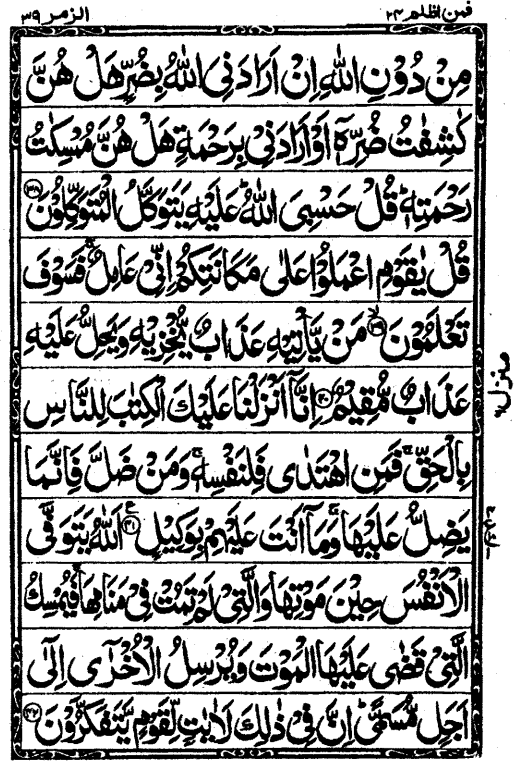 فمن اظلم ۲۴
الزمر ۳۹
مِنْ دُوْنِ اللّٰهِ اِنْ اَرَادَنِیَ اللّٰهُ بِضُرٍّ هَلْ هُنَّ
كٰشِفٰتُ ضُرِّهٖۤ اَوْ اَرَادَنِیْ بِرَحْمَةٍ هَلْ هُنَّ مُمْسِكٰتُ
رَحْمَتِهٖ ؕ قُلْ حَسْبِیَ اللّٰهُ ؕ عَلَیْهِ یَتَوَكَّلُ الْمُتَوَكِّلُوْنَ ﴿۳۸﴾
قُلْ یٰقَوْمِ اعْمَلُوْا عَلٰی مَكَانَتِكُمْ اِنِّیْ عَامِلٌ ۚ فَسَوْفَ
تَعْلَمُوْنَ ﴿۳۹﴾ۙ مَنْ یَّاْتِیْهِ عَذَابٌ یُّخْزِیْهِ وَیَحِلُّ عَلَیْهِ
عَذَابٌ مُّقِیْمٌ ﴿۴۰﴾ اِنَّاۤ اَنْزَلْنَا عَلَیْكَ الْكِتٰبَ لِلنَّاسِ
بِالْحَقِّ ۚ فَمَنِ اهْتَدٰی فَلِنَفْسِهٖ ۚ وَمَنْ ضَلَّ فَاِنَّمَا
یَضِلُّ عَلَیْهَا ۚ وَمَاۤ اَنْتَ عَلَیْهِمْ بِوَكِیْلٍ ﴿۴۱﴾ؑ اَللّٰهُ یَتَوَفَّی
الْاَنْفُسَ حِیْنَ مَوْتِهَا وَالَّتِیْ لَمْ تَمُتْ فِیْ مَنَامِهَا ۚ فَیُمْسِكُ
الَّتِیْ قَضٰی عَلَیْهَا الْمَوْتَ وَیُرْسِلُ الْاُخْرٰۤی اِلٰۤی
اَجَلٍ مُّسَمًّی ؕ اِنَّ فِیْ ذٰلِكَ لَاٰیٰتٍ لِّقَوْمٍ یَّتَفَكَّرُوْنَ ﴿۴۲﴾
منزل ۶